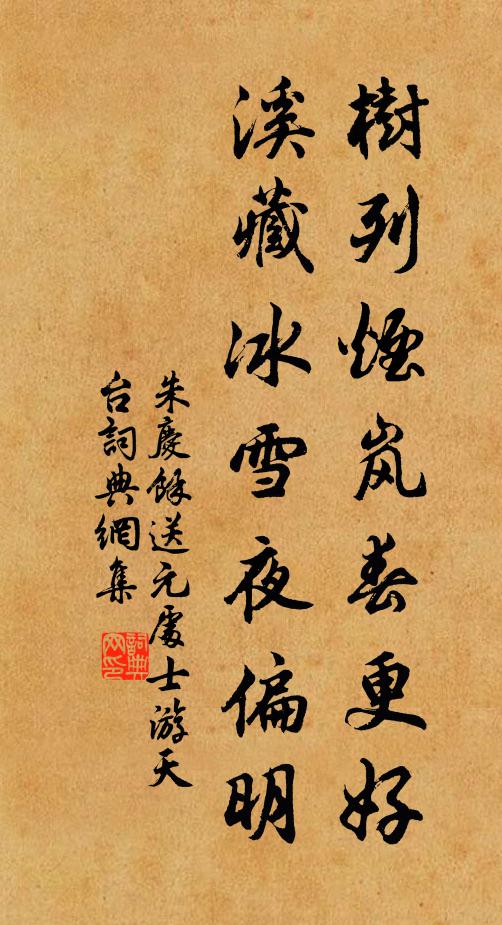 樹列煙岚春更好
溪藏冰雪夜偏明
朱慶餘送元處士游天
台詞典網集
詞典网印